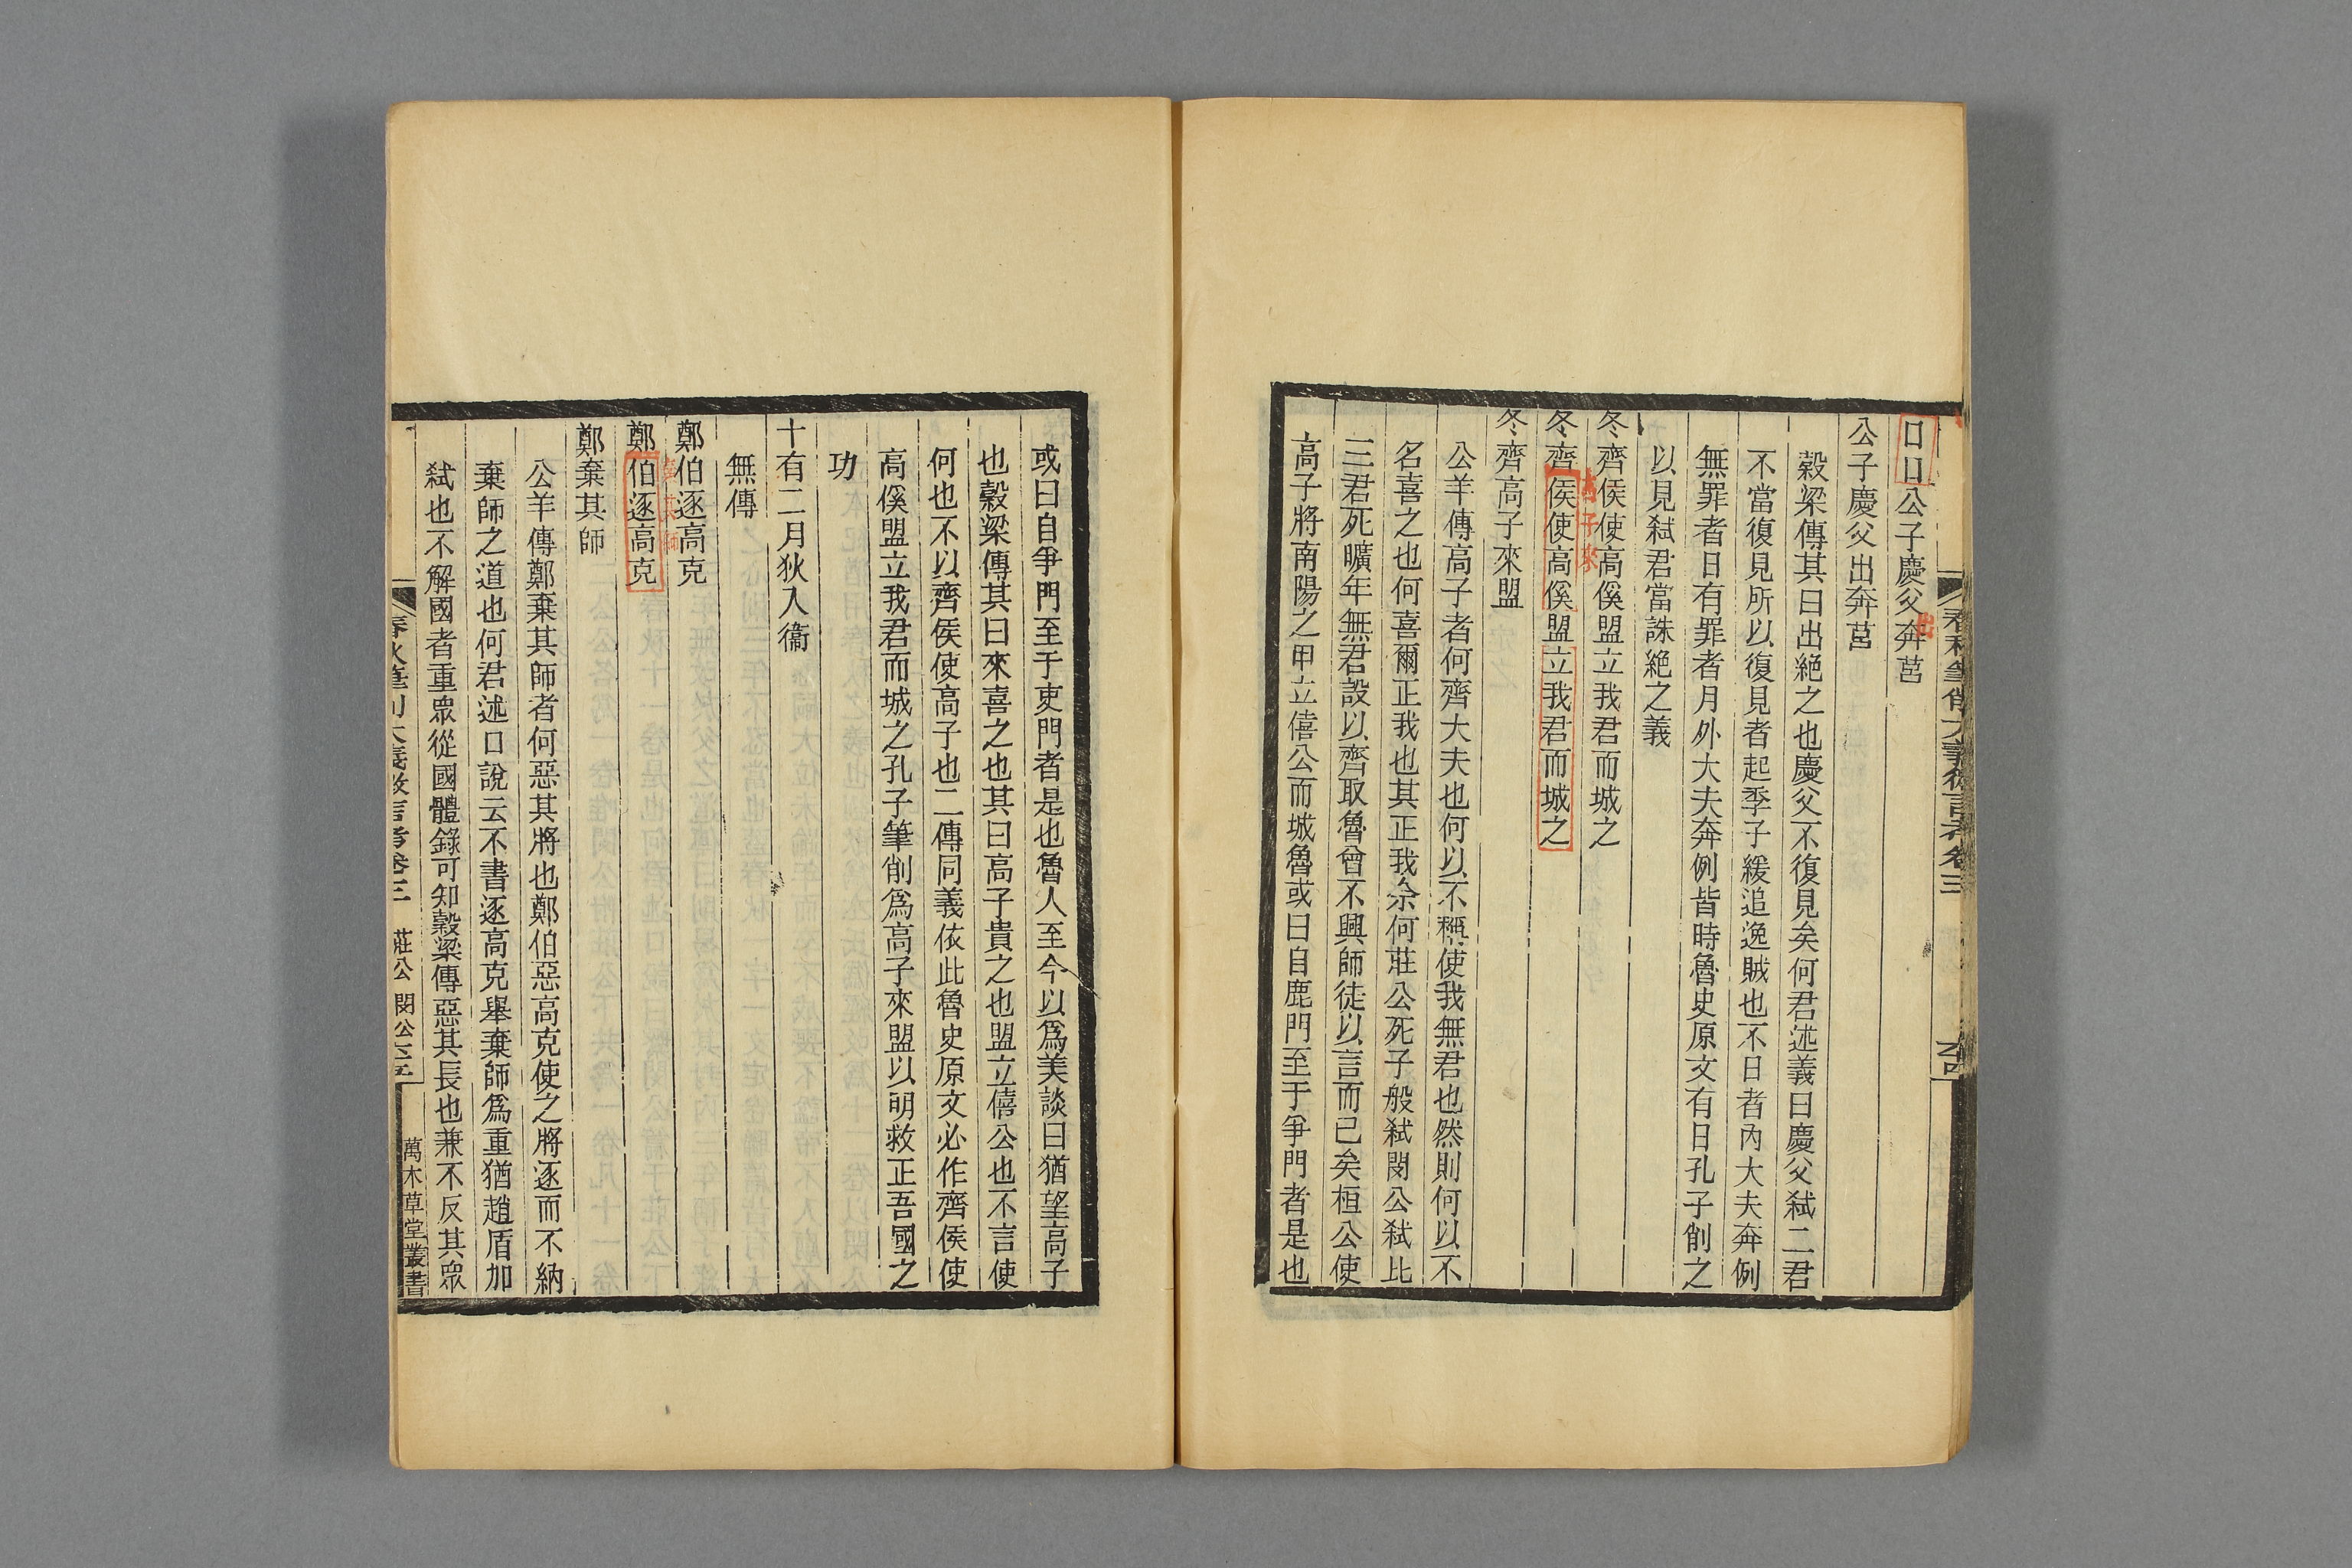 春秋筆削大義微言考卷三
口口公子慶父奔莒
出
公子慶父出奔莒
穀梁傳其曰出絕之也慶父不復見矣何君述義曰慶父弑二君
不當復見所以復見者起季子緩追逸賊也不日者內大夫奔例
無罪者日有罪者月外大夫奔例皆時魯史原文有日孔子削之
以見弑君當誅絕之義
冬齊侯使高傒盟立我君而城之
高子來
冬齊侯使高傒盟立我君而城之
冬齊高子來盟
公羊傳高子者何齊大夫也何以不稱使我無君也然則何以不
名喜之也何喜爾正我也其正我奈何莊公死子般弑閔公弑比
三君死曠年無君設以齊取魯曾不興師徒以言而已矣桓公使
高子將南陽之甲立僖公而城魯或曰自鹿門至于爭門者是也
或曰自爭門至于吏門者是也魯人至今以爲美談曰猶望高子
也穀梁傳其曰來喜之也其曰高子貴之也盟立僖公也不言使
何也不以齊侯使高子也二傳同義依此魯史原文必作齊侯使
高傒盟立我君而城之孔子筆削爲高子來盟以明救正吾國之
功
十有二月狄入衞
無傳
鄭伯逐高克
棄其師
鄭伯逐高克
鄭棄其師
公羊傳鄭棄其師者何惡其將也鄭伯惡高克使之將逐而不納
棄師之道也何君述口說云不書逐高克舉棄師爲重猶趙盾加
弑也不解國者重眾從國體錄可知穀梁傳惡其長也兼不反其眾
春秋筆削大義微言考卷三 莊公 閔公
萬木草堂叢書